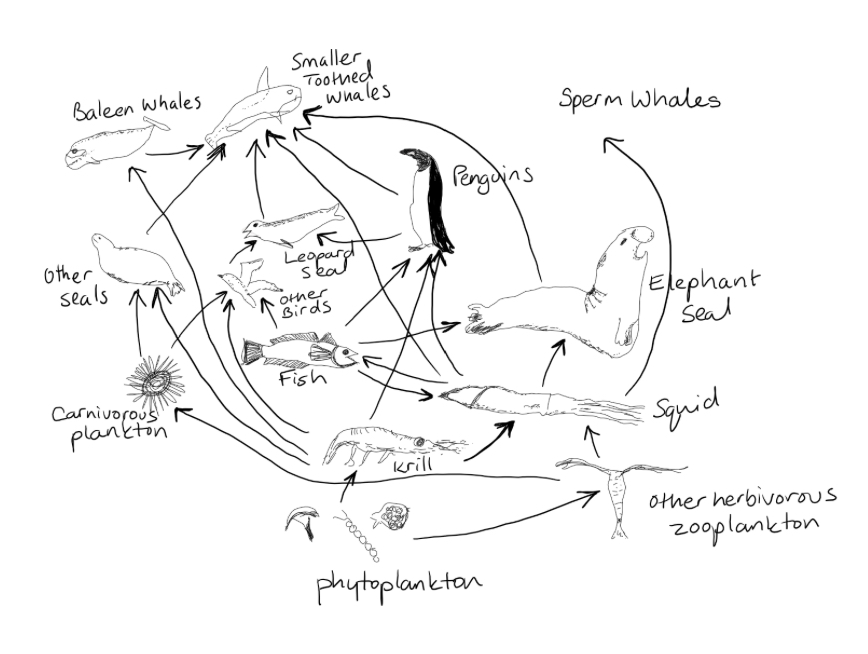 Smaller
Toothed
Whales
Baleen Whales
Sperm Whales
Penguins
Leopard
Seal
Other
Seals
Other
Birds
Elephant
Seal
Fish
Carnivorous
plankton
Squid
Krill
Other herbivorous
zooplankton
phytoplankton